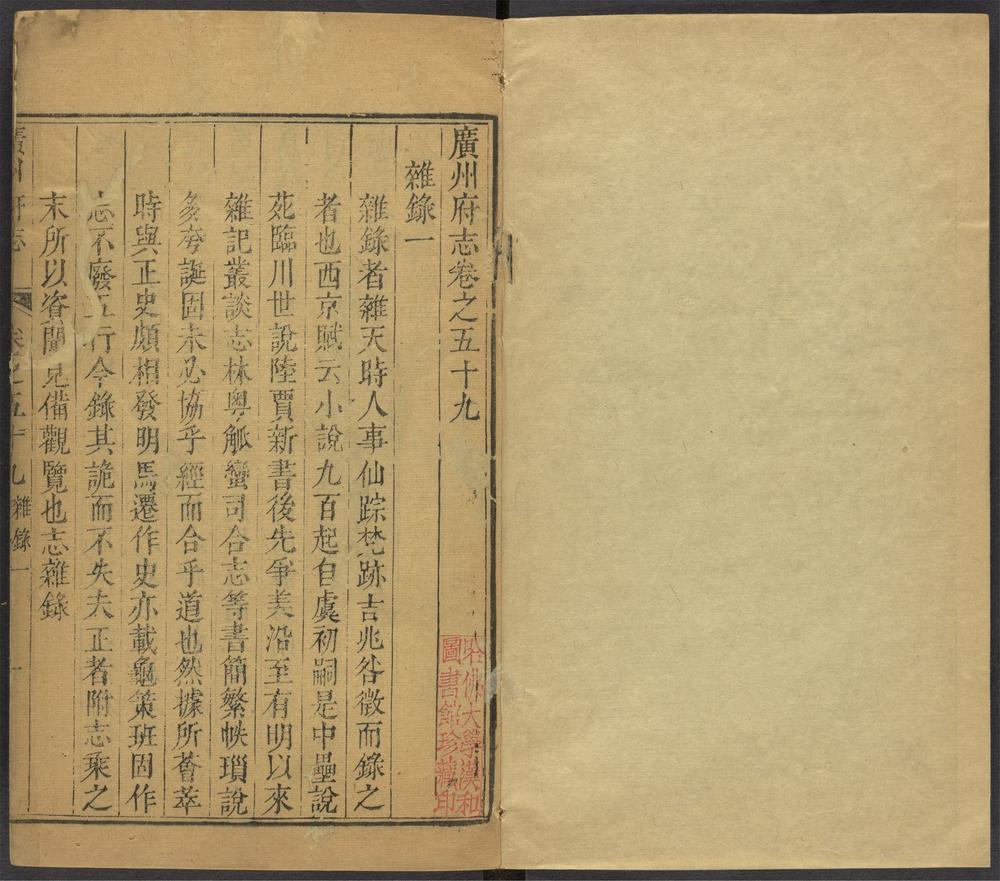 廣州府志卷之五十九
雜錄一
雜錄者雜天時人事仙踪梵跡吉兆咎徵而錄之
者也西京賦云小說九百起自虞初嗣是中壘說
苑臨川世說陸賈新書後先爭美沿至有明以來
雜記叢談志林粵觚蠻司合志等書簡繁帙瑣說
多夸誕固未必協乎經而合乎道也然據所薈萃
時與正史頗相發明馬遷作史亦載龜策班固作
志不廢五行今錄其詭而不失夫正者附志乘之
末所以資聞見備觀覽也志雜錄
廣州府志
卷之五十九
雜錄一
一
哈佛大學漢和
圖書館珍藏印